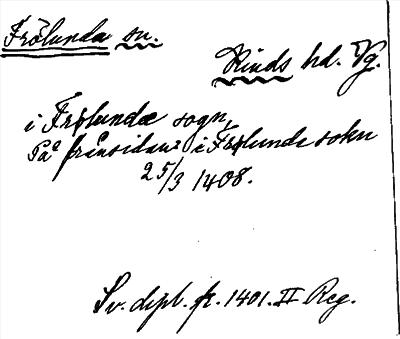 Frölunda sn.
Kinds hd. Vg.
i Frølundæ sogn,
På frånsidan i Frølunda sokn
25/3 1408.
Sv. dipl. fr. 1401. II Reg.